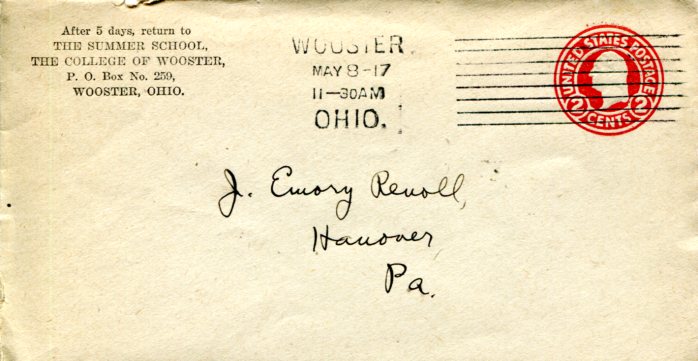 After 5 days, return to
THE SUMMER SCHOOL,
THE COLLEGE OF WOOSTER,
P. O. Box No. 259,
WOOSTER, OHIO.
WOOSTER
MAY 8-17
11-30AM
OHIO.
UNITED STATES POSTAGE
2 CENTS 2
J. Emory Renoll,
Hanover
Pa.